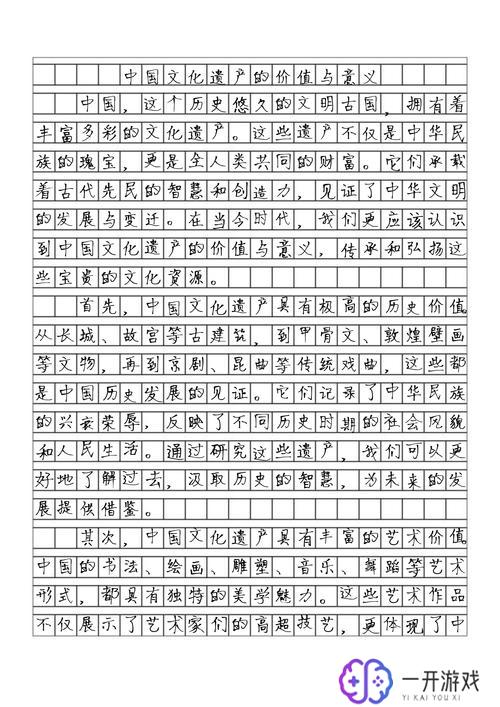 中国文化遗产的价值与意义
中国，这个历史悠久的文明古国，拥有着
丰富多彩的文化遗产。这些遗产不仅是中华民
族的瑰宝，更是全人类共同的财富。它们承载
着古代先民的智慧和创造力，见证了中华文明
的发展与变迁。在当今时代，我们更应该认识
到中国文化遗产的价值与意义，传承和弘扬这
些宝贵的文化資源。
首先，中国文化遗产具有极高的历史价值。
从长城、故宫等古建筑，到甲骨文、敦煌壁画
等文物，再到京剧、昆曲等传统戏曲，这些都
是中国历史发展的见证。它们记录了中华民族
的兴衰荣辱，反映了不同历史时期的社会风貌
和人民生活。通过研究这些遗产，我们可以更
好地了解过去，汲取历史的智慧，为未来的发
展提供借鉴。
其次，中国文化遗产具有丰富的艺术价值。
中国的书法、绘画、雕塑、音乐、舞蹈等艺术
形式，都具有独特的美学魅力。这些艺术作品
不仅展示了艺术家们的高超技艺，更体现了中
一开游戏
YI KAI YOU XI